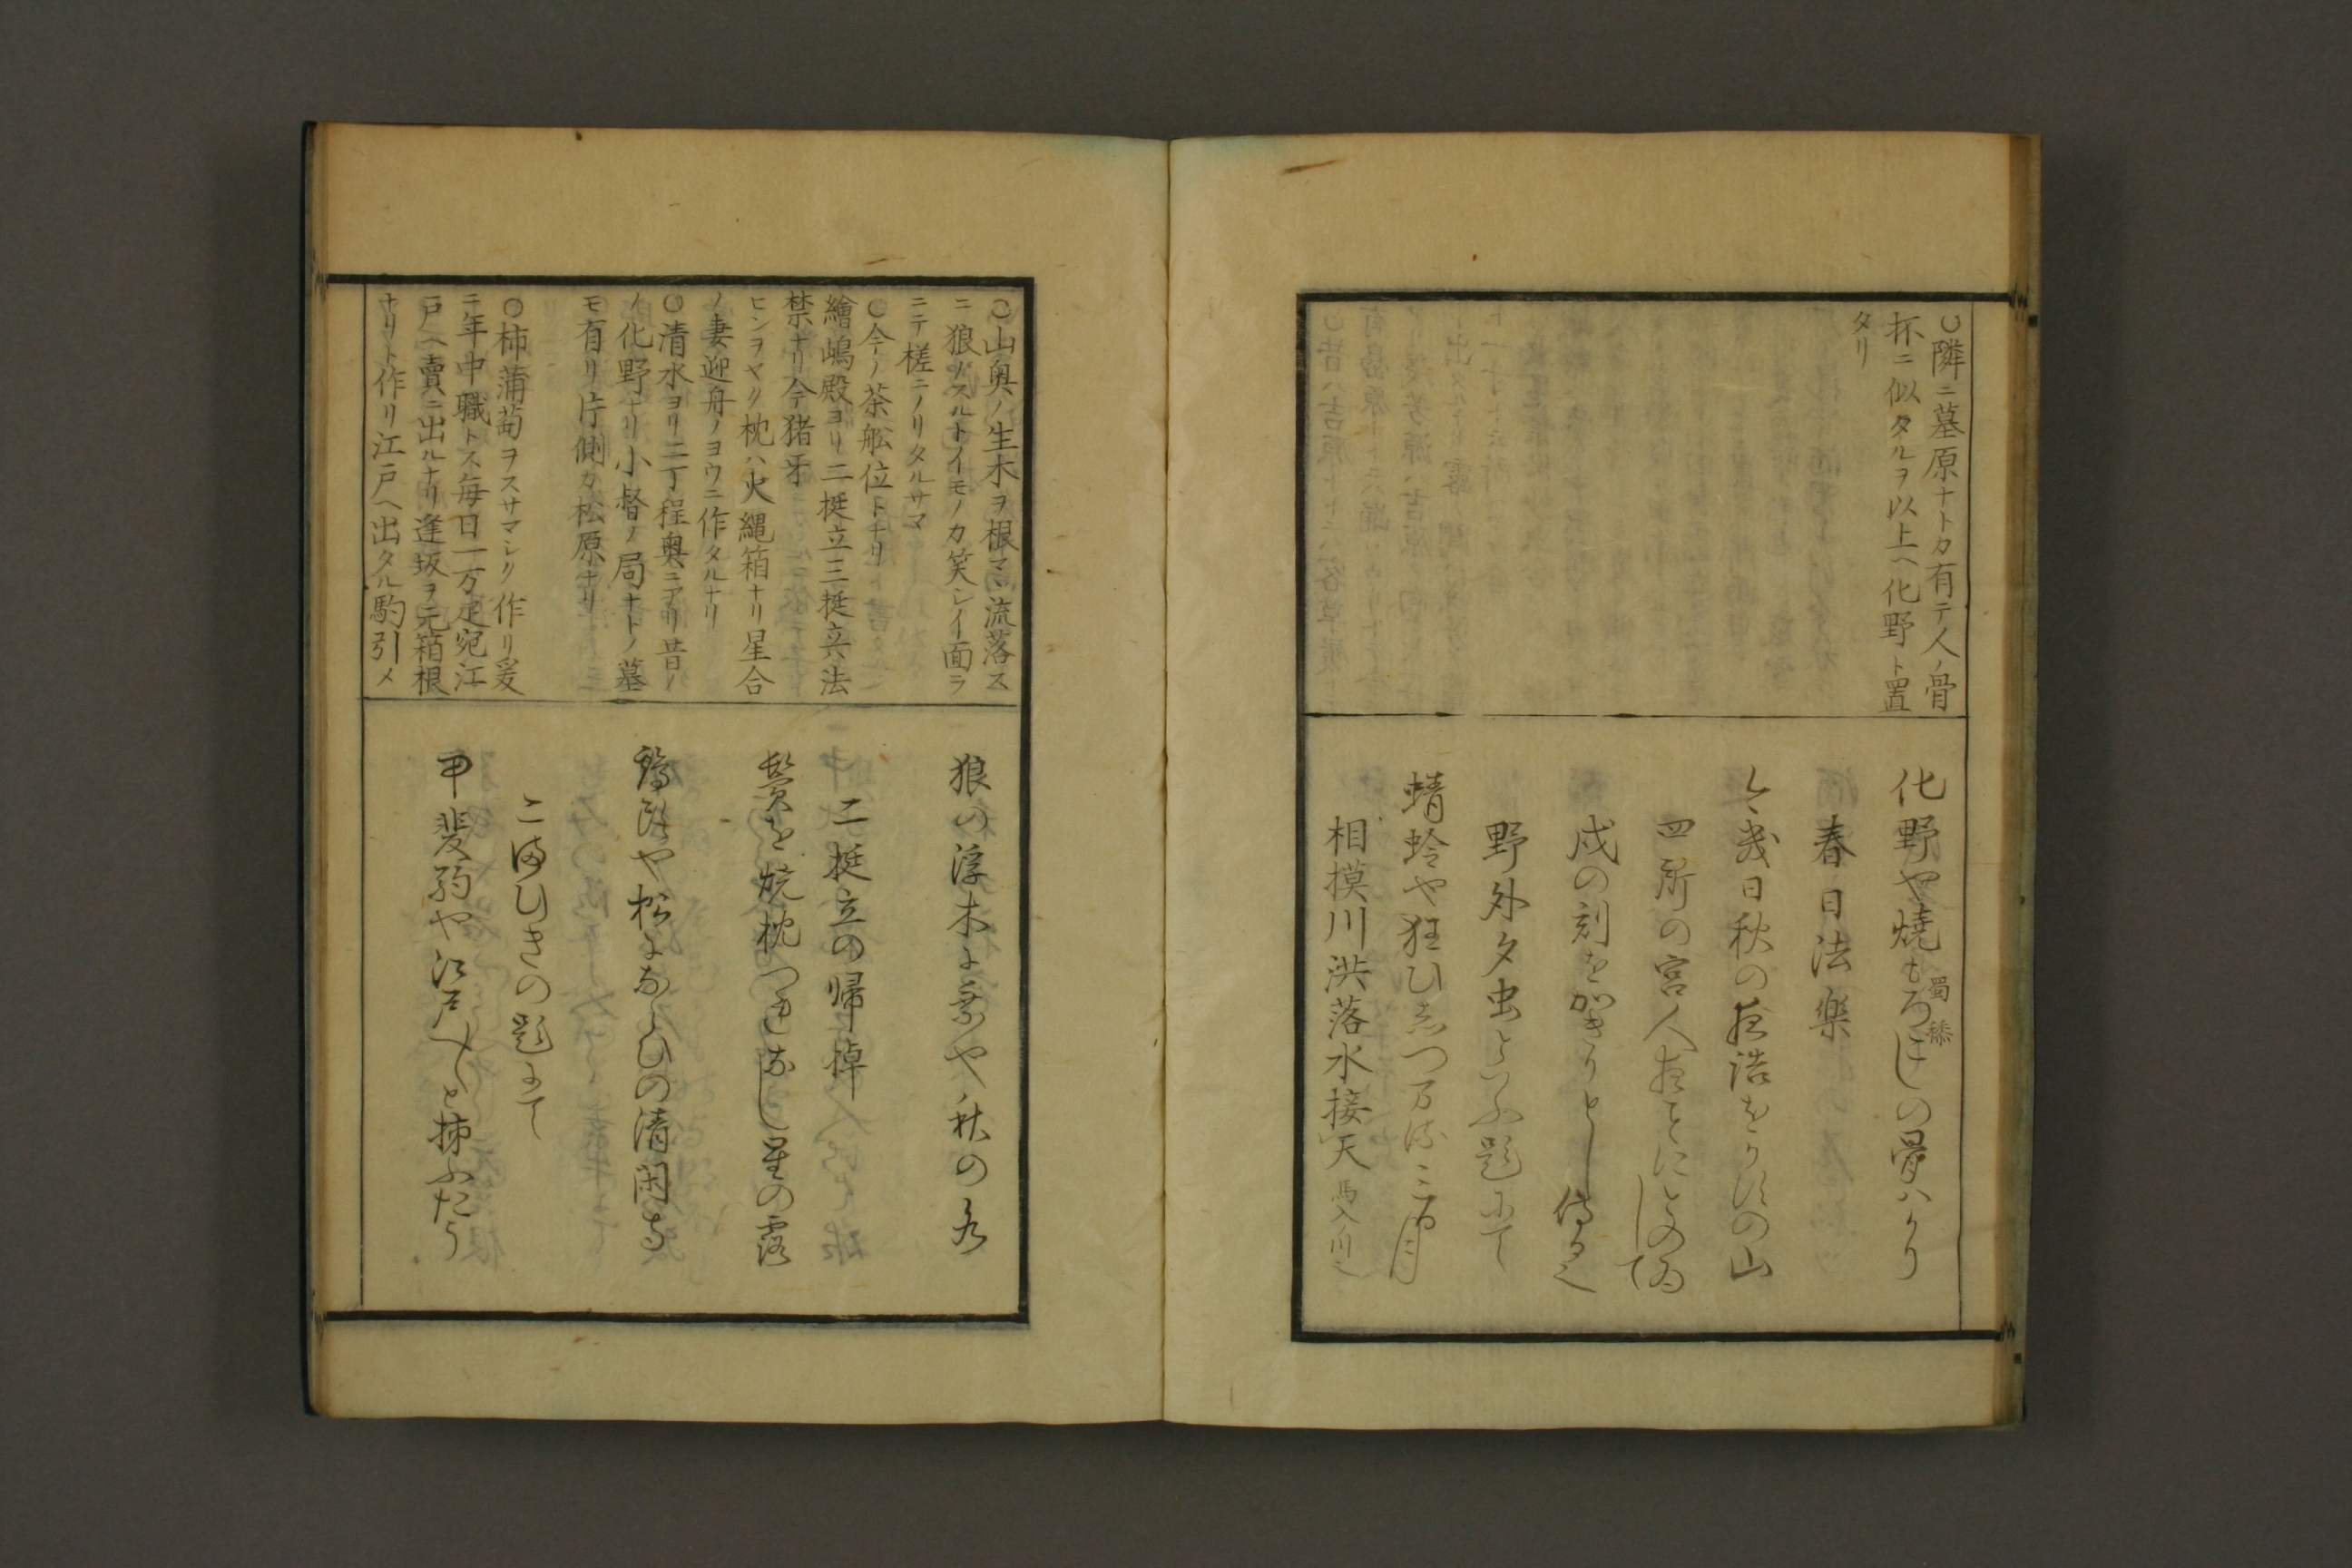 〇隣ニ墓原ナトカ有テ人ノ骨
抔ニ似タルヲ以上ヘ化野ト置
タリ
化野や焼もろこしの骨ハかり
蜀 黍
春日法楽
今幾日秋の夜詰をかすの山
四所の宮人夜ことにとのゐて
戌の刻をかきりとし侍る也
野外夕虫といふ題にて
蜻蛉や狂ひしつまる三日月
相摸川洪落水接天 馬入川也
〇山奥ノ生木ヲ根マヽ流落ス
ニ狼ノスルトイモノカ笑シイ面ラ
ニテ槎ニノリタルサマ
〇今ノ茶舩位トナリ
繪嶋殿ヨリ二挺立三挺立法
禁ナリ今猪牙
ヒンヲヤク枕ハ火縄箱ナリ星合
ノ妻迎舟ノヨウニ作タルナリ
〇清水ヨリ二丁程奥ニアリ昔ノ
ノ化野ナリ小督ノ局ナトノ墓
モ有リ片側カ松原ナリ
〇柿蒲萄ヲスサマシク作リ爰
ニ年中職トス毎日一万疋宛江
戸ヘ賣ニ出ルナリ逢坂ヲ元箱根
ナリト作リ江戸ヘ出タル駒引メ
狼の浮木に乗や秋の水
二挺立の帰棹
鬢を焼枕つれなし星の露
や松にならひの清閑寺
こまひきの題にて
甲斐駒や江戸へ〳〵と柿ふたう